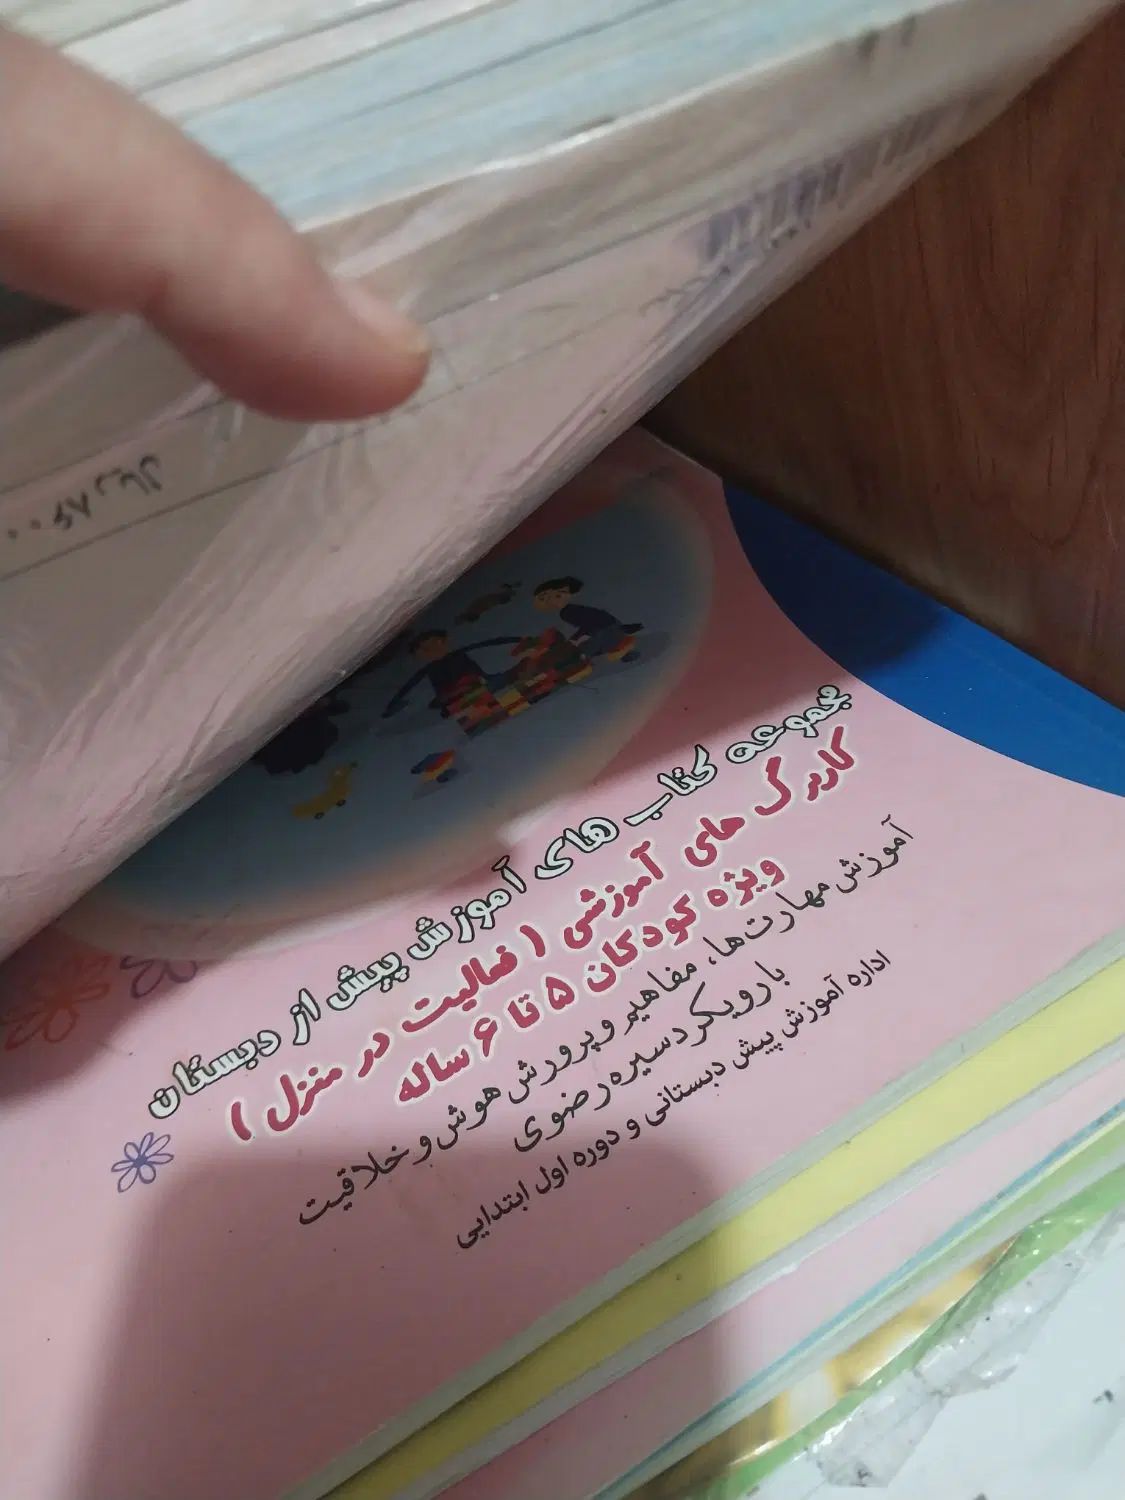 مجموعه کتاب های آموزش پیش از دبستان
کاربرگ های آموزشی ( فعالیت در منزل )
ویژه کودکان ۵ تا ۶ ساله
آموزش مهارت‌ها، مفاهیم و پرورش هوش و خلاقیت
با رویکرد سیره رضوی
اداره آموزش پیش دبستانی و دوره اول ابتدایی
ریال